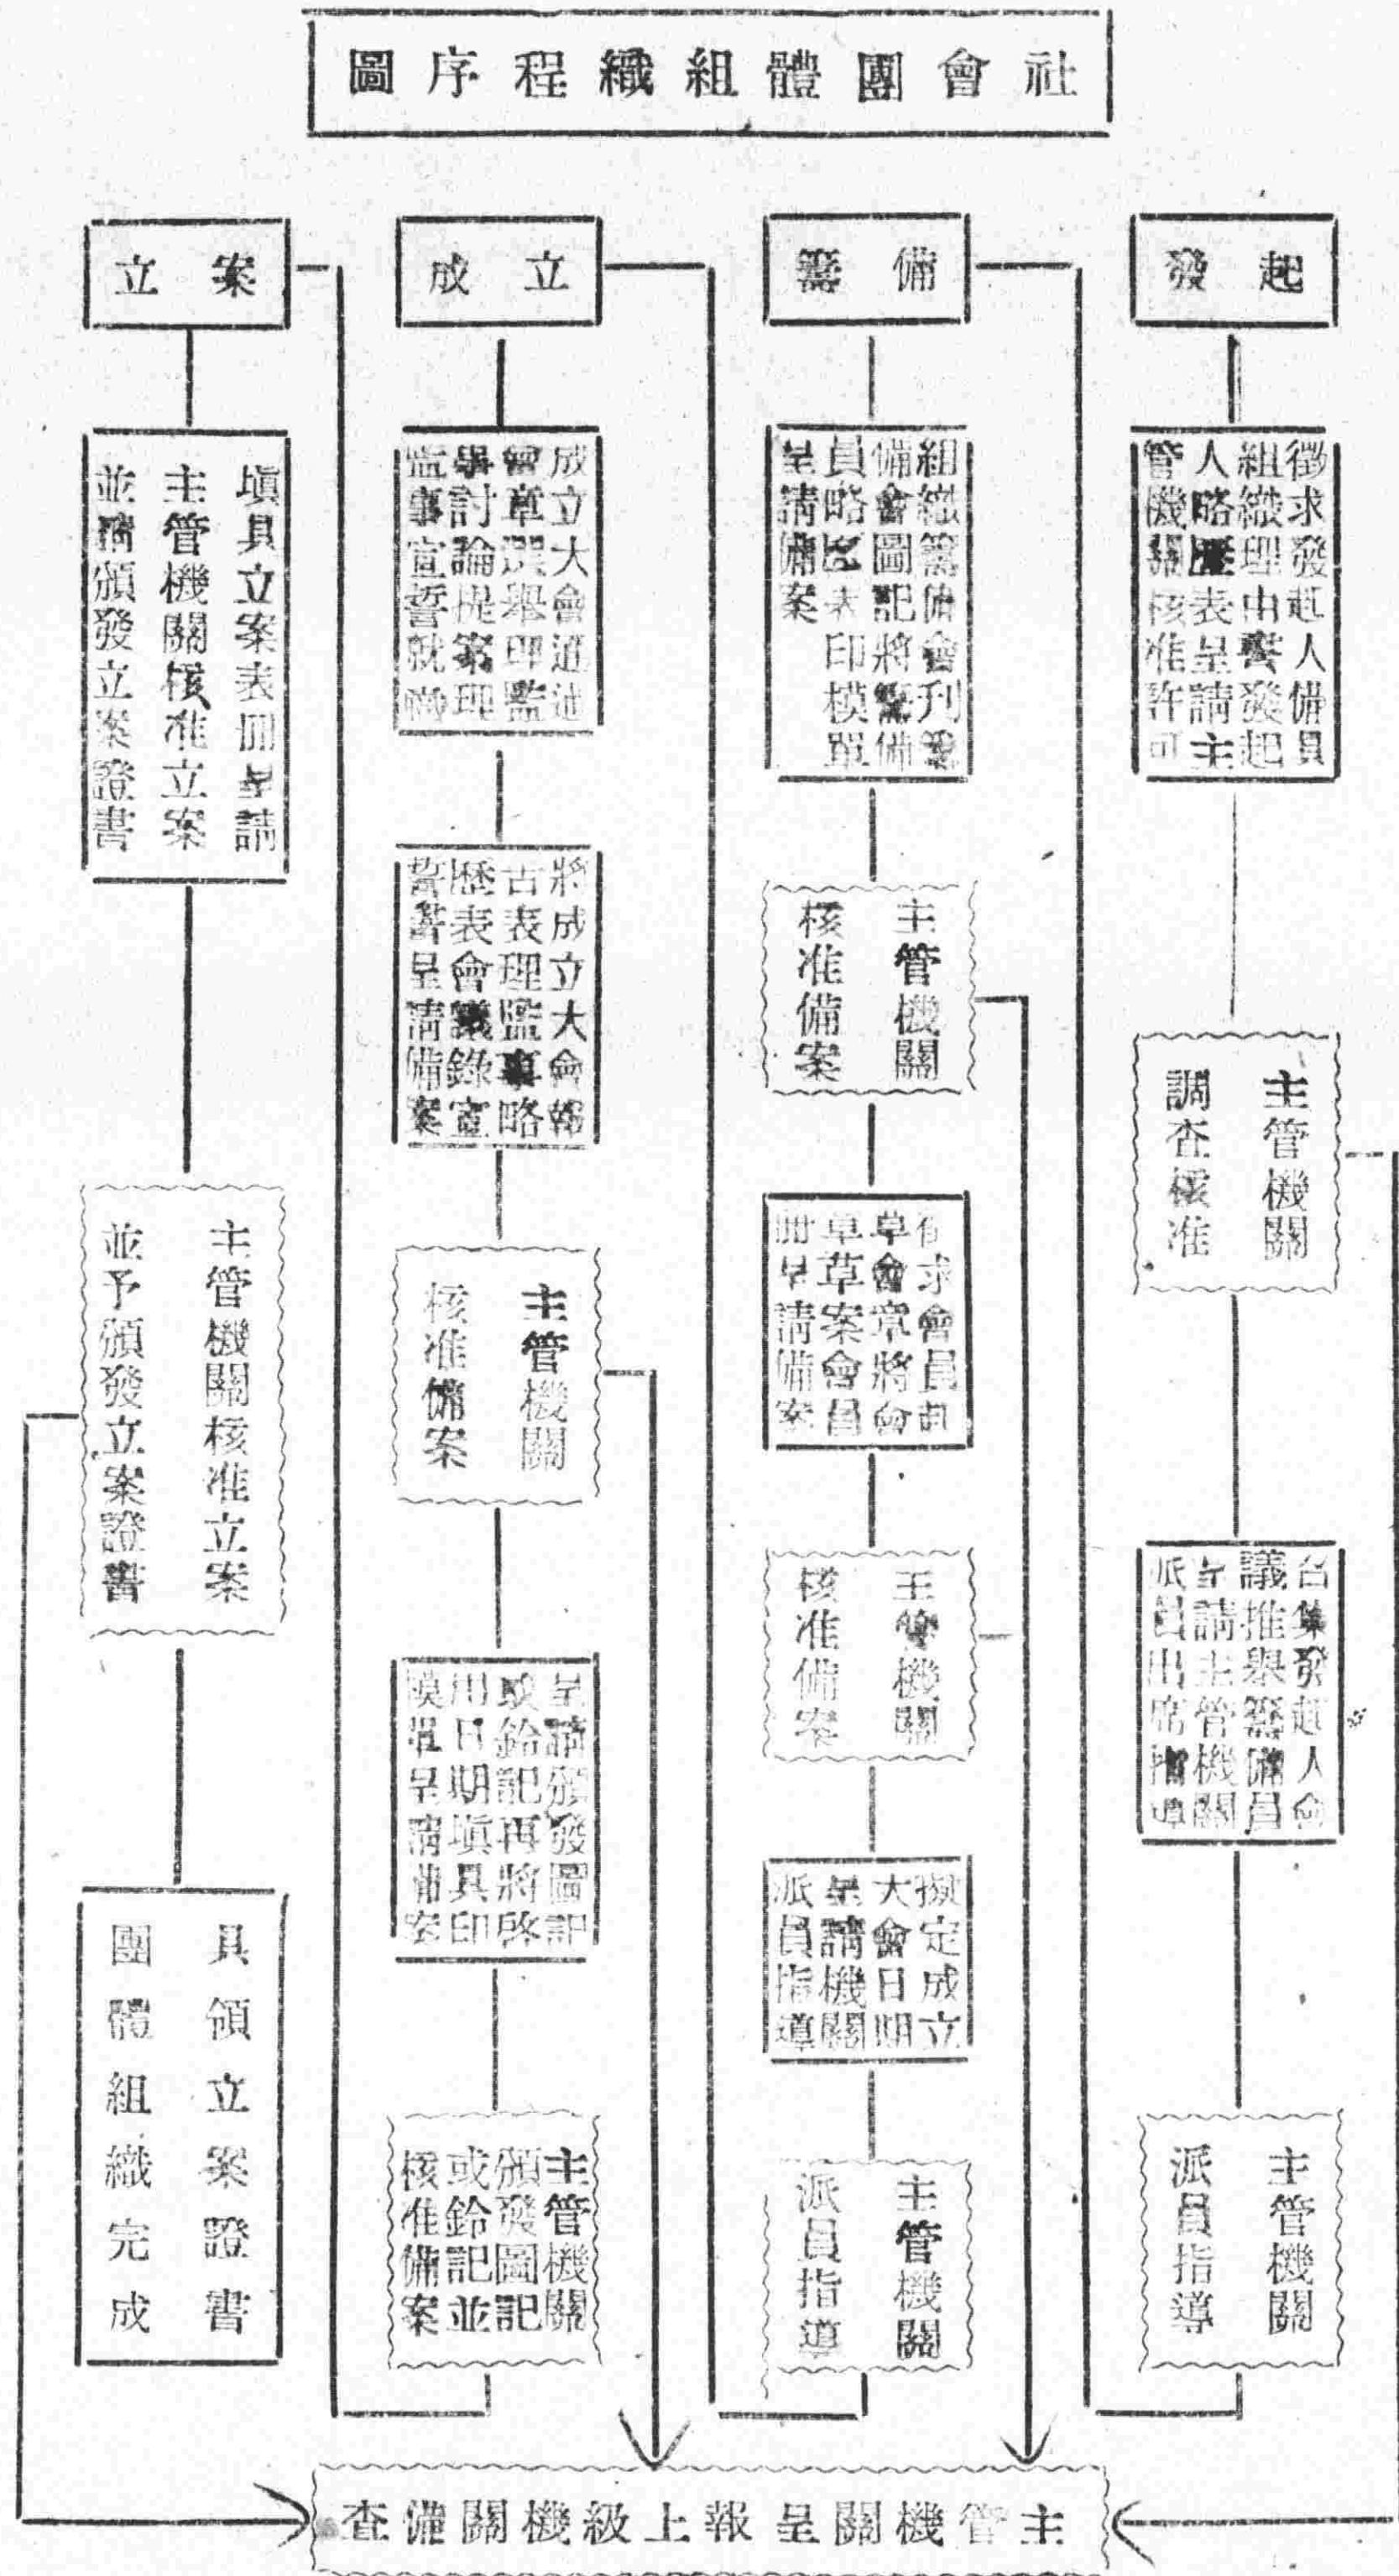 社會團體組織程序圖
發起
徵求發起人備具
組織理由書發起
人略歷表呈請主
管機關核准許可
主管機關
調查核准
召集發起人會
議推舉籌備員
呈請主管機關
派員出席指導
主管機關
派員指導
籌備
組織籌備會刊籌
備會圖記將籌備
員略歷表印模單
呈請備案
主管機關
核准備案
徵求會員起
草會章將會
章草案會員
冊呈請備案
主管機關
核准備案
擬定成立
大會日期
呈請機關
派員指導
主管機關
派員指導
成立
成立大會通過
會章選舉理監
事討論提案理
監事宣誓就職
將成立大會報
告表理監事略
歷表會議錄宣
誓書呈請備案
主管機關
核准備案
呈請頒發圖記
或鈐記再將啓
用日期填具印
模單呈請備案
主管機關
頒發圖記
或鈐記並
核准備案
立案
填具立案表冊呈請
主管機關核准立案
並請頒發立案證書
主管機關核准立案
並予頒發立案證書
具領立案證書
團體組織完成
主管機關呈報上級機關備查